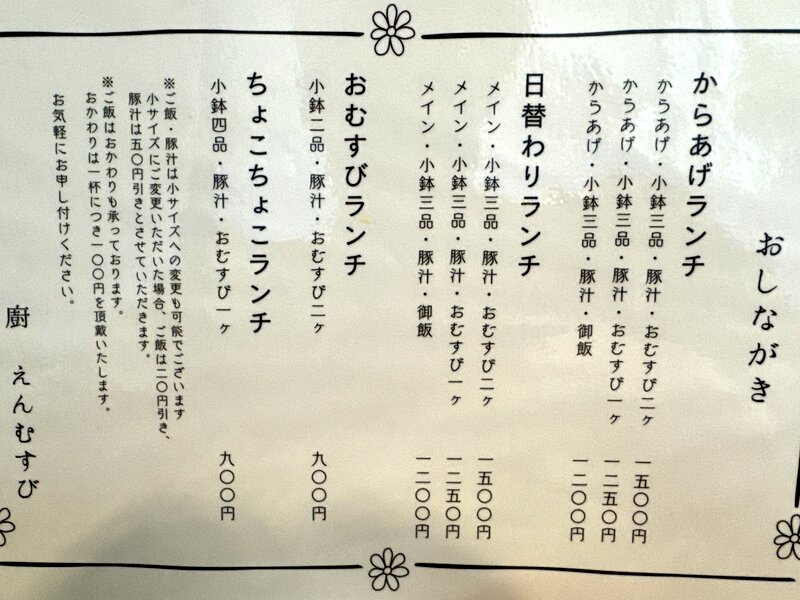 おしながき
からあげランチ
からあげ・小鉢三品・豚汁・おむすび二ヶ 一五〇〇円
からあげ・小鉢三品・豚汁・おむすび一ヶ 一二五〇円
からあげ・小鉢三品・豚汁・御飯 一二〇〇円
日替わりランチ
メイン・小鉢三品・豚汁・おむすび二ヶ 一五〇〇円
メイン・小鉢三品・豚汁・おむすび一ヶ 一二五〇円
メイン・小鉢三品・豚汁・御飯 一二〇〇円
おむすびランチ
小鉢二品・豚汁・おむすび二ヶ 九〇〇円
ちょこちょこランチ
小鉢四品・豚汁・おむすび一ヶ 九〇〇円
※ご飯・豚汁は小サイズへの変更も可能でございます
小サイズにご変更いただいた場合、ご飯は二〇円引き、
豚汁は五〇円引きとさせていただきます。
※ご飯はおかわりも承っております。
おかわりは一杯につき一〇〇円を頂戴いたします。
お気軽にお申し付けください。
廚 えんむすび